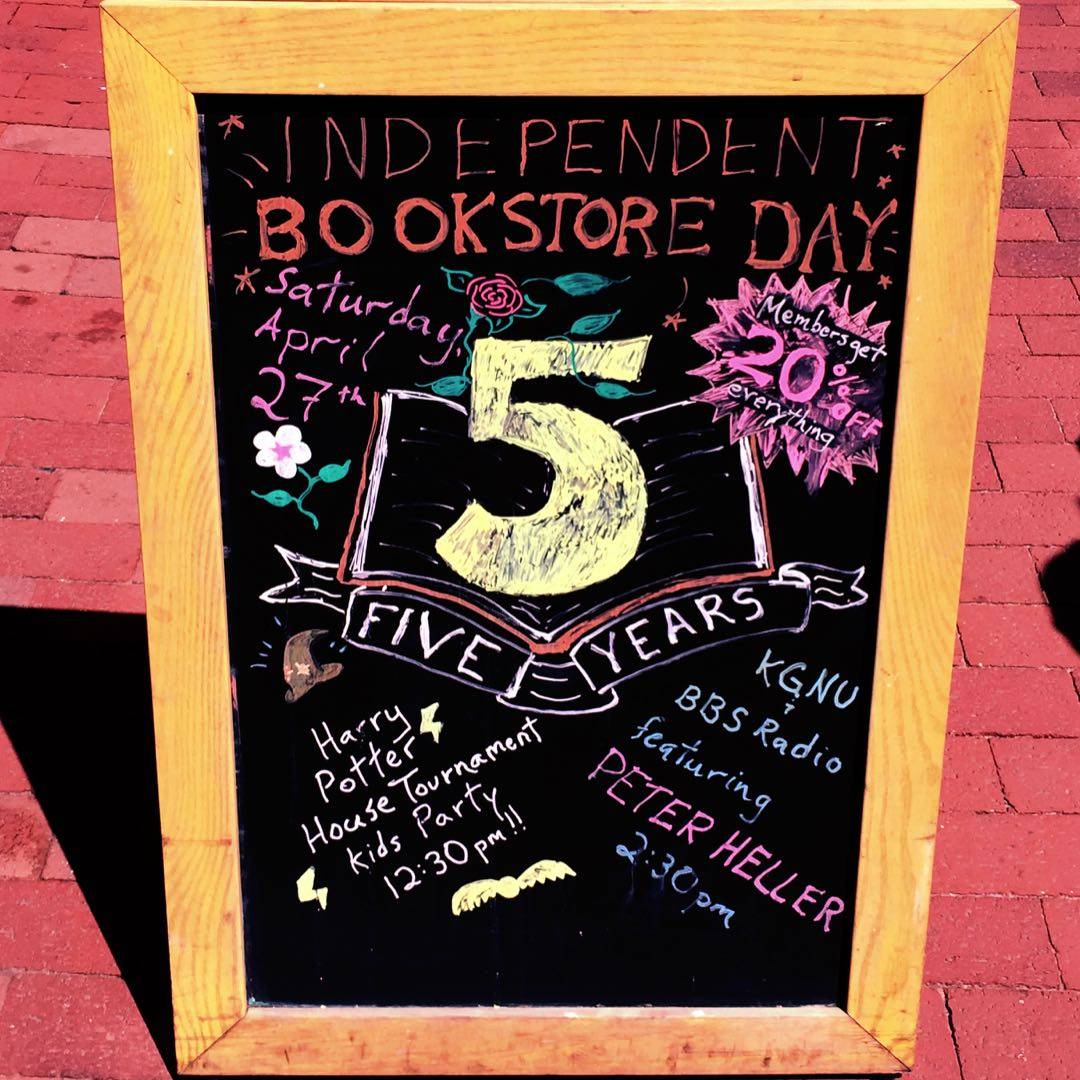 INDEPENDENT
BOOKSTORE DAY
Saturday,
April
27th
Members get
20% OFF
everything
5
FIVE YEARS
Harry
Potter
House Tournament
Kids Party
12:30 pm!!
KGNU
BBS Radio
featuring
PETER HELLER
2:30pm